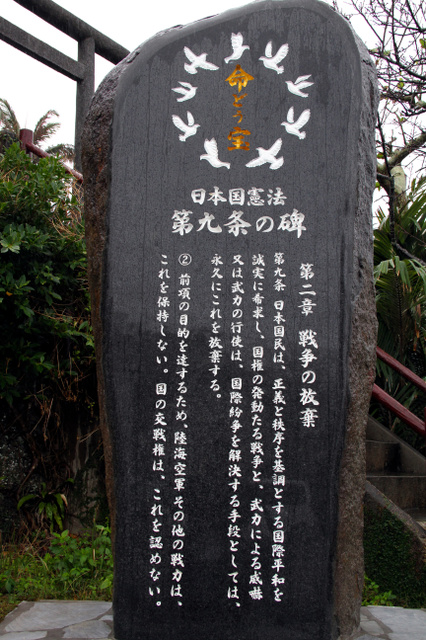 命どぅ宝
日本国憲法
第九条の碑
第二章 戦争の放棄
第九条 日本国民は、正義と秩序を基調とする国際平和を
誠実に希求し、国権の発動たる戦争と、武力による威嚇
又は武力の行使は、国際紛争を解決する手段としては、
永久にこれを放棄する。
② 前項の目的を達するため、陸海空軍その他の戦力は、
これを保持しない。国の交戦権は、これを認めない。